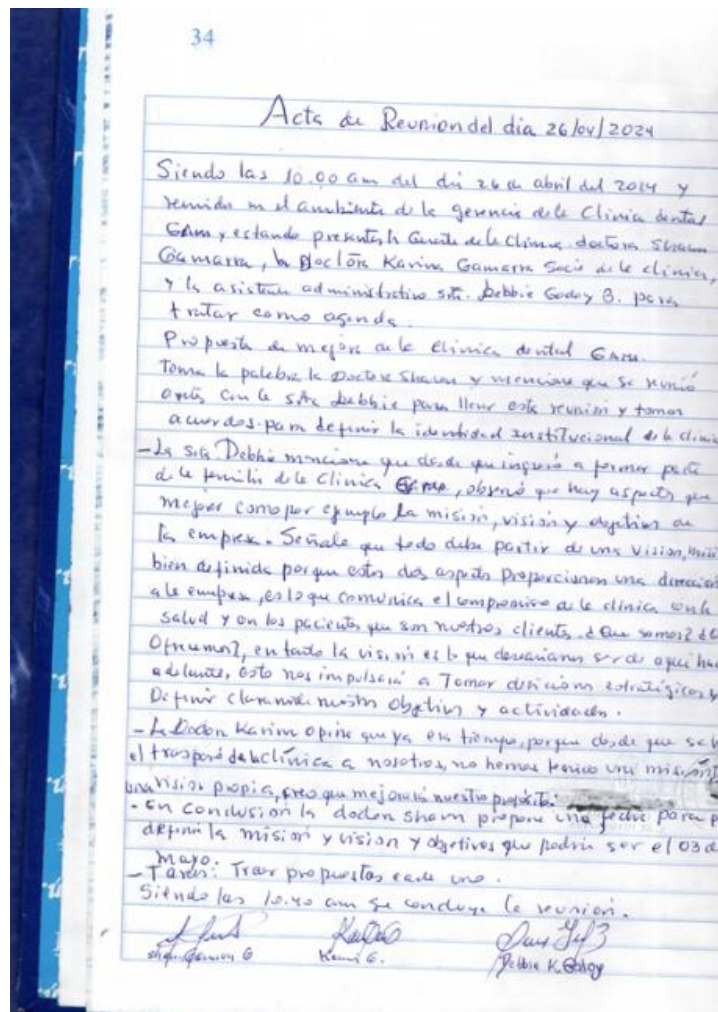 34
Acta de Reunion del dia 26/04/2024
Siendo las 10.00 am del dia 26 de abril del 2024 y
reunido en el ambiente de la gerencia de la Clinica dental
GAM y estando presente la Gerente de la Clinica doctora Sharon
Gamarra, la Doctora Karina Gamarra Socia de la clinica,
y la asistente administrativo srta. Debbie Godoy B. para
tratar como agenda.
Propuesta de mejora de la Clinica dental GAM.
Toma la palabra la Doctora Sharon y menciona que se reunió
con la srta Debbie para llevar esta reunión y tomar
acuerdos para definir la identidad institucional de la clinica
- La srta Debbie menciona que desde que ingresó a formar parte
de la familia de la Clinica, observó que hay aspectos que
mejorar como por ejemplo la misión, visión y objetivos de
la empresa. Señala que todo debe partir de una Visión,
bien definida porque estos dos aspectos proporcionan una dirección
a la empresa, es lo que comunica el compromiso de la clínica con la
salud y con los pacientes que son nuestros clientes. ¿Que somos?
Ofrecemos?, en tanto la visión es lo que desearíamos ser de aquí
adelante, esto nos impulsará a Tomar decisiones estratégicas y
Definir claramente nuestros Objetivos y actividades.
- La Doctora Karina opina que ya era tiempo, porque desde que se
el traspaso de la clínica a nosotros, no hemos tenido una misión
una visión propia, creo que mejorará nuestro propósito.
- En conclusión la doctora Sharon propone una fecha para
definir la misión y visión y objetivos que podría ser el 03 de
mayo.
- Tarea: Traer propuestas cada uno.
Siendo las 10.40 am se concluye la reunión.
Karina G.
Debbie K. Godoy